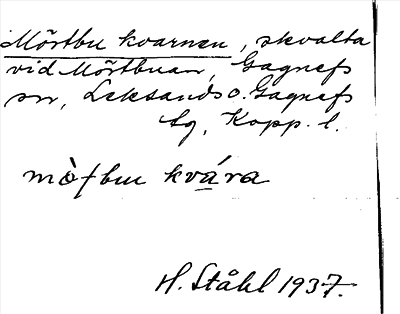 Mörtbu kvarnen, skvalta
vid Mörtbuan, Gagnefs
sn, Leksands o. Gagnefs
tg, Kopp. l.
mòʈbu kvára
H. Ståhl 1937.